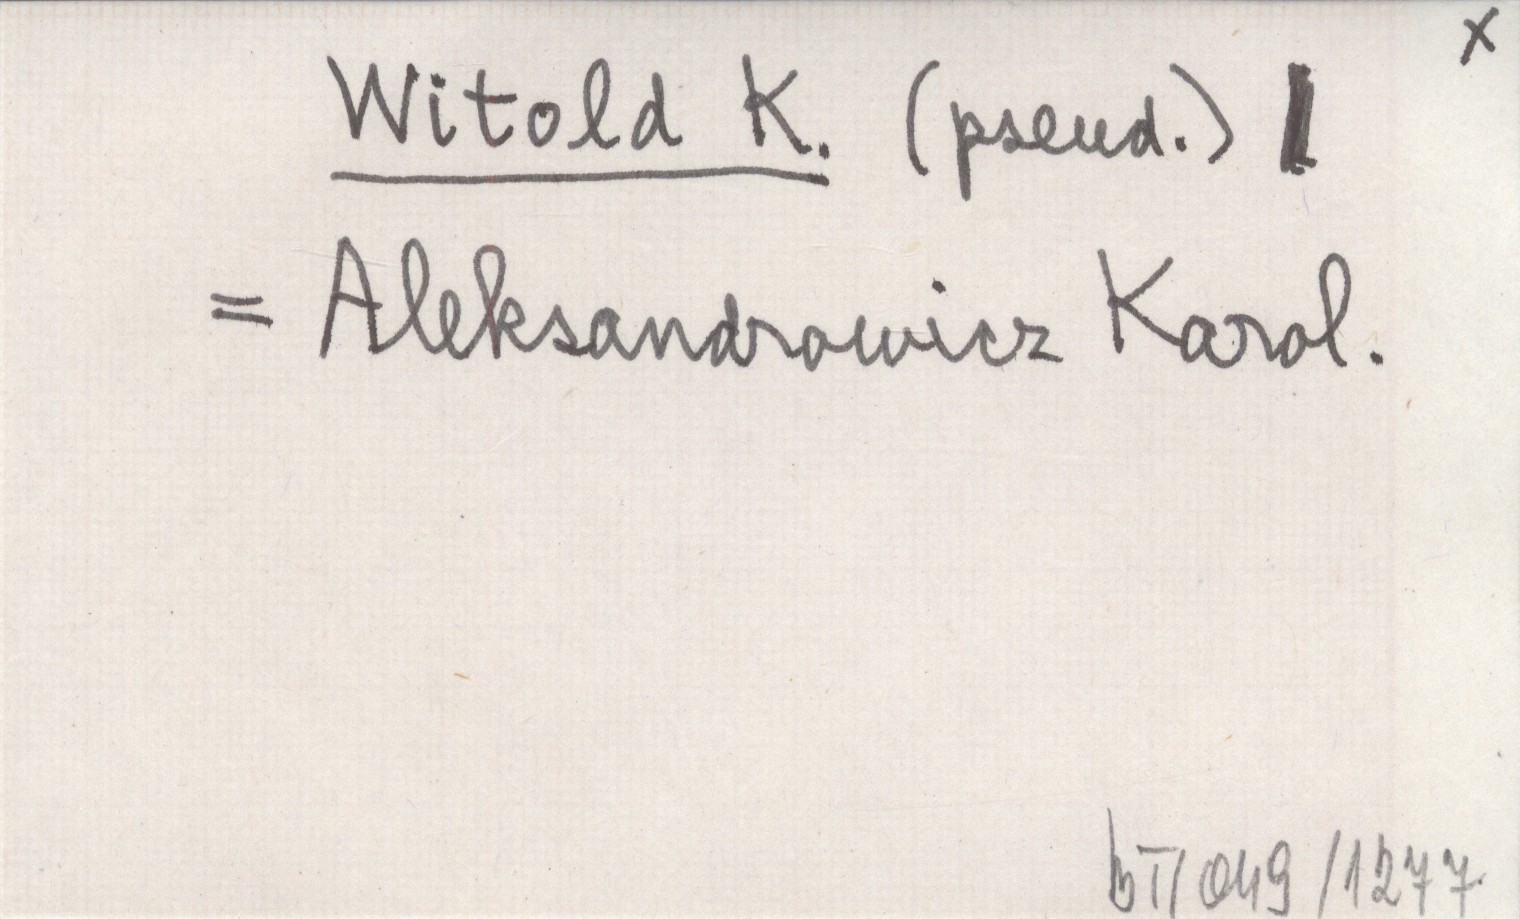 x
Witold K. (pseud.)
= Aleksandrowicz Karol.
bT/049/1277